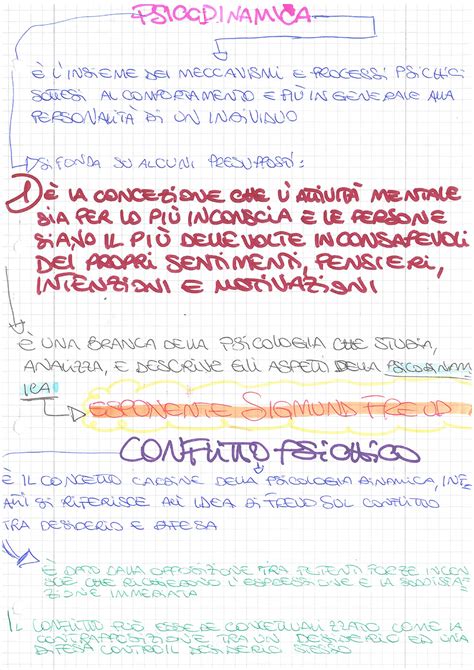 PSICODINAMICA
È L'INSIEME DEI MECCANISMI E PROCESSI PSICHICI
SOTTESI AL COMPORTAMENTO E PIÙ IN GENERALE ALLA
PERSONALITÀ DI UN INDIVIDUO
SI FONDA SU ALCUNI PRESUPPOSTI:
1) È LA CONCEZIONE CHE L'ATTIVITÀ MENTALE
SIA PER LO PIÙ INCONSCIA E LE PERSONE
SIANO IL PIÙ DELLE VOLTE INCONSAPEVOLI
DEI PROPRI SENTIMENTI, PENSIERI,
INTENZIONI E MOTIVAZIONI
È UNA BRANCA DELLA PSICOLOGIA CHE STUDIA,
ANALIZZA, E DESCRIVE GLI ASPETTI DELLA PSICODINAM
ICA
ESPONENTE SIGMUND FREUD
CONFLITTO PSICHICO
È IL CONCETTO CARDINE DELLA PSICOLOGIA DINAMICA, INF
ATTI SI RIFERISCE ALL'IDEA DI FREUD SUL CONFLITTO
TRA DESIDERIO E DIFESA
È DATO DALLA OPPOSIZIONE TRA POTENTI FORZE INCON
SCE CHE RICHIEDONO L'ESPRESSIONE E LA SODDISFA
ZIONE IMMEDIATA
IL CONFLITTO PUÒ ESSERE CONCETTUALIZZATO COME LA
CONTRAPPOSIZIONE TRA UN DESIDERIO ED UNA
DIFESA CONTRO IL DESIDERIO STESSO